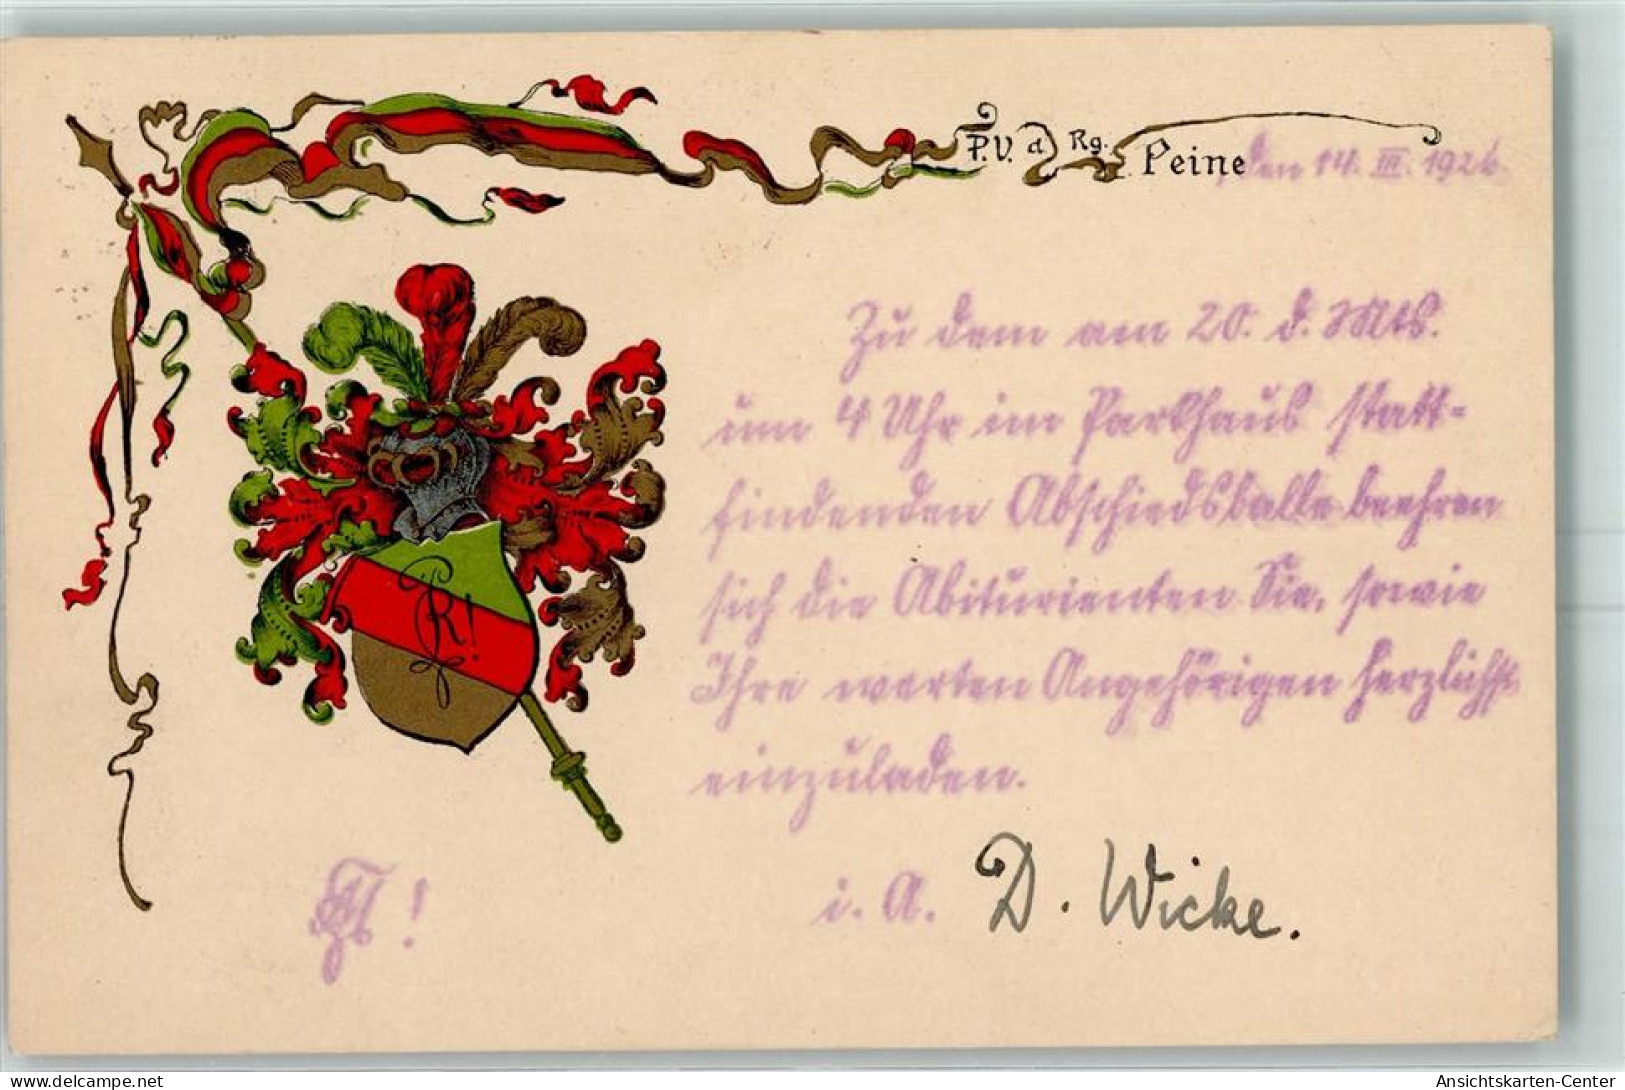 P.V. d Rg. Peine, den 14. III. 1926.
Zu dem am 20. d. Mts.
um 4 Uhr im Parkhaus statt-
findenden Abschiedsballe beehren
sich die Abiturienten Sie, sowie
Ihre werten Angehörigen herzlichst
einzuladen.
R!
i. A. D. Wicke.
www.ansichtskarten-center.de
Ansichtskarten-Center